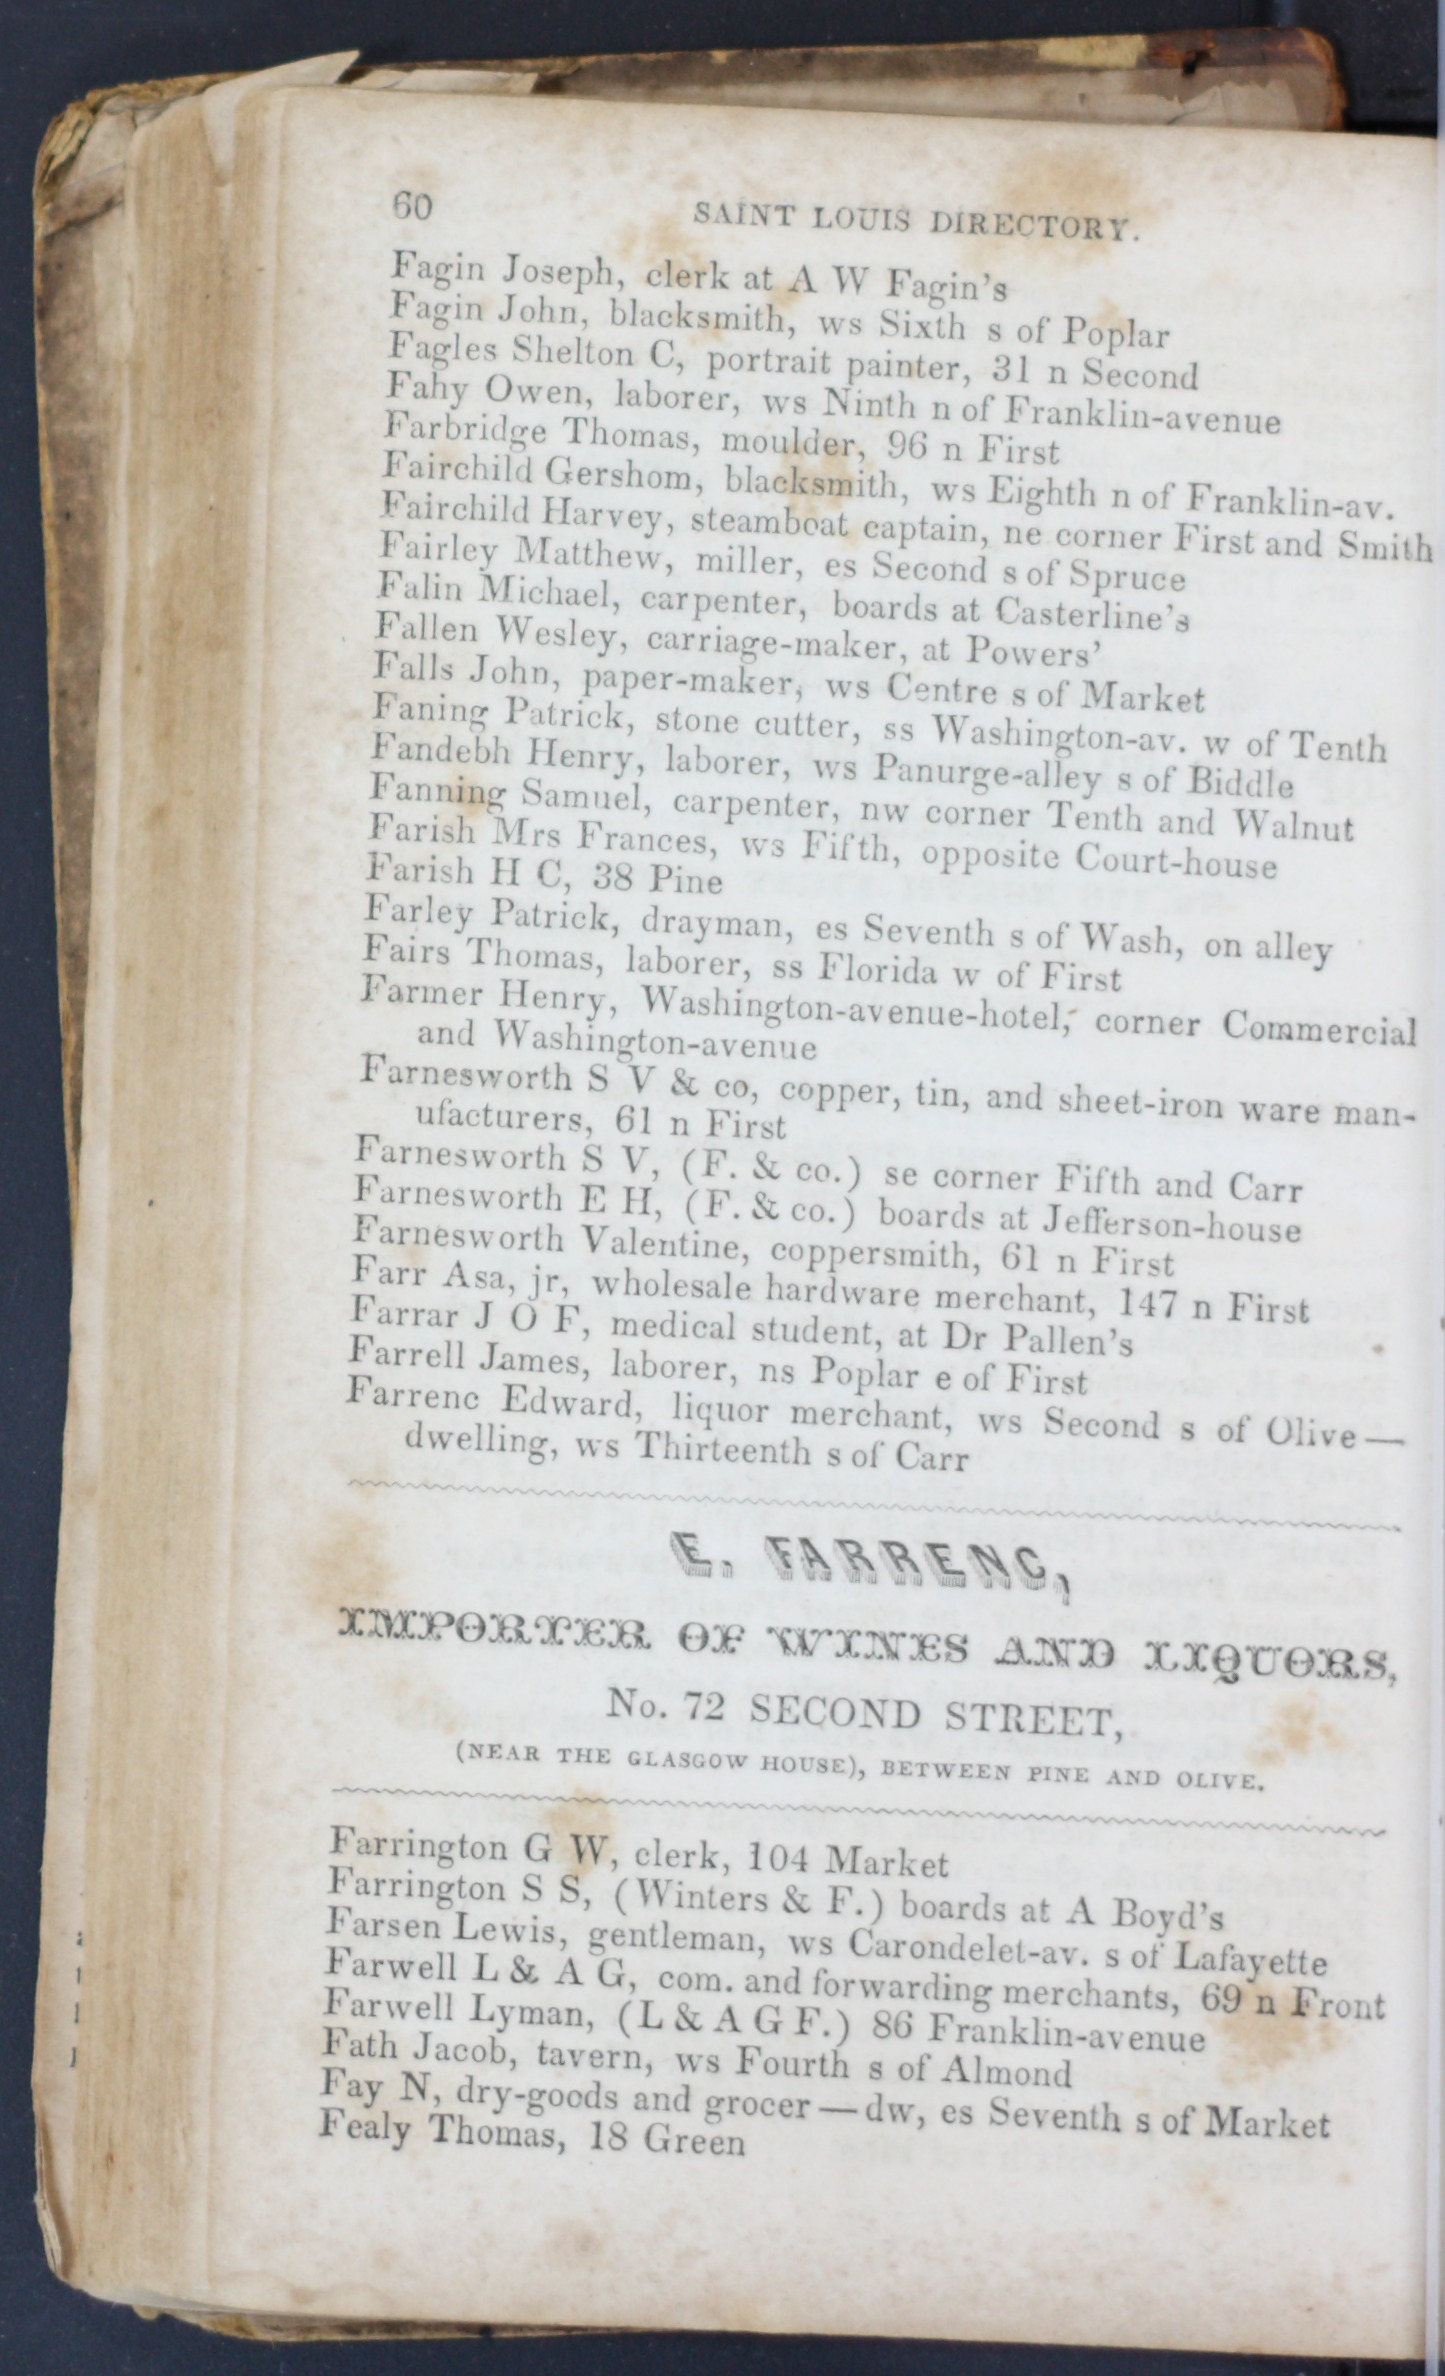 60 SAINT LOUIS DIRECTORY.
Fagin Joseph, clerk at A W Fagin's
Fagin John, blacksmith, ws Sixth s of Poplar
Fagles Shelton C, portrait painter, 31 n Second
Fahy Owen, laborer, ws Ninth n of Franklin-avenue
Farbridge Thomas, moulder, 96 n First
Fairchild Gershom, blacksmith, ws Eighth n of Franklin-av.
Fairchild Harvey, steamboat captain, ne corner First and Smith
Fairley Matthew, miller, es Second s of Spruce
Falin Michael, carpenter, boards at Casterline's
Fallen Wesley, carriage-maker, at Powers'
Falls John, paper-maker, ws Centre s of Market
Faning Patrick, stone cutter, ss Washington-av. w of Tenth
Fandebh Henry, laborer, ws Panurge-alley s of Biddle
Fanning Samuel, carpenter, nw corner Tenth and Walnut
Farish Mrs Frances, ws Fifth, opposite Court-house
Farish H C, 38 Pine
Farley Patrick, drayman, es Seventh s of Wash, on alley
Fairs Thomas, laborer, ss Florida w of First
Farmer Henry, Washington-avenue-hotel, corner Commercial
and Washington-avenue
Farnesworth S V & co, copper, tin, and sheet-iron ware man-
ufacturers, 61 n First
Farnesworth S V, (F. & co.) se corner Fifth and Carr
Farnesworth E H, (F. & co.) boards at Jefferson-house
Farnesworth Valentine, coppersmith, 61 n First
Farr Asa, jr, wholesale hardware merchant, 147 n First
Farrar J O F, medical student, at Dr Pallen's
Farrell James, laborer, ns Poplar e of First
Farrenc Edward, liquor merchant, ws Second s of Olive—
dwelling, ws Thirteenth s of Carr
E. FARRENC,
IMPORTER OF WINES AND LIQUORS,
No. 72 SECOND STREET,
(NEAR THE GLASGOW HOUSE), BETWEEN PINE AND OLIVE.
Farrington G W, clerk, 104 Market
Farrington S S, (Winters & F.) boards at A Boyd's
Farsen Lewis, gentleman, ws Carondelet-av. s of Lafayette
Farwell L & A G, com. and forwarding merchants, 69 n Front
Farwell Lyman, (L & A G F.) 86 Franklin-avenue
Fath Jacob, tavern, ws Fourth s of Almond
Fay N, dry-goods and grocer—dw, es Seventh s of Market
Fealy Thomas, 18 Green